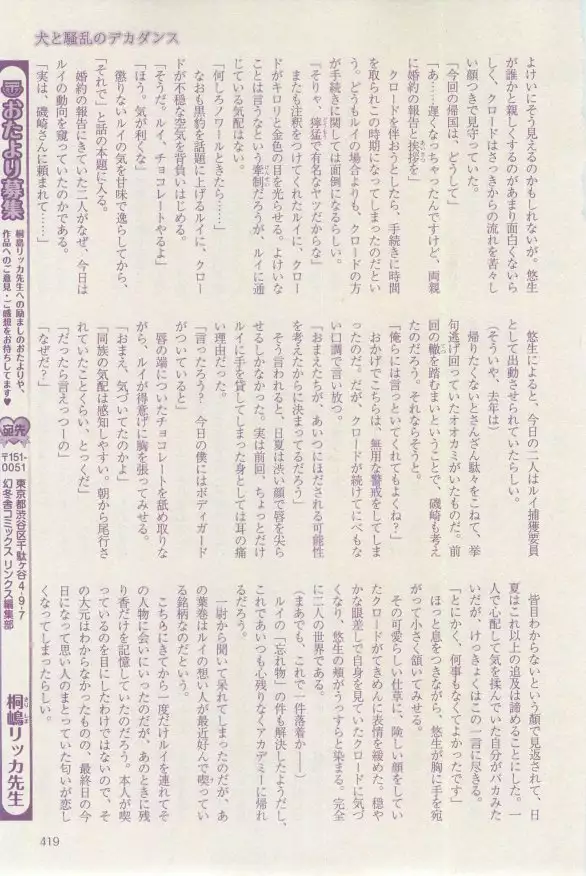 犬と騒乱のデカダンス
よけいにそう見えるのかもしれないが。悠生
が誰かと親しくするのがあまり面白くないら
しく、クロードはさっきからの流れを苦々し
い顔つきで見守っていた。
「今回の帰国は、どうして」
「あ……遅くなっちゃったんですけど、両親
に婚約の報告と挨拶を」
クロードを伴おうとしたら、手続きに時間
を取られこの時期になってしまったのだとい
う。どうもルイの場合よりも、クロードの方
が手続きに関しては面倒になるらしい。
「そりゃ、獰猛で有名なヤツだからな」
またも注釈をつけてくれたルイに、クロー
ドがキロリと金色の目を光らせる。よけいな
ことは言うなという牽制だろうが、ルイに通
じている気配はない。
「何しろノワールときたら……」
なおも黒豹を話題に上げるルイに、クロー
ドが不穏な空気を背負いはじめる。
「そうだ。ルイ、チョコレートやるよ」
「ほう。気が利くな」
懲りないルイの気を甘味で逸らしてから、
「それで」と話の本題に入る。
婚約の報告にきていた二人がなぜ、今日は
ルイの動向を窺っていたのかである。
「実は、磯崎さんに頼まれて……」
悠生によると、今日の二人はルイ捕獲要員
として出動させられていたらしい。
（そういや、去年は）
帰りたくないとさんざん駄々をこねて、挙
句逃げ回っていたオオカミがいたものだ。前
回の轍を踏むまいということで、磯崎も考え
たのだろう。それならそうと。
「俺らには言っといてくれてもよくね？」
おかげでこちらは、無用な警戒をしてしま
ったのだ。だが、クロードが続けてにべもな
い口調で言い放つ。
「おまえたちが、あいつにほだされる可能性
を考えたからに決まってるだろう」
そう言われると、日夏は渋い顔で唇を尖ら
せるしかなかった。実は前回、ちょっとだけ
ルイに手を貸してしまった身としては耳の痛
い理由だった。
「言ったろう？　今日の僕にはボディガード
がついていると」
唇の端についたチョコレートを舐め取りな
がら、ルイが得意げに胸を張ってみせる。
「おまえ、気づいてたのかよ」
「同族の気配は感知しやすい。朝から尾行さ
れていたことくらい、とっくだ」
「だったら言えっつーの」
「なぜだ？」
皆目わからないという顔で見返されて、日
夏はこれ以上の追及は諦めることにした。一
人で心配して気を揉んでいた自分がバカみた
いだが、けっきょくはこの一言に尽きる。
「とにかく、何事もなくてよかったです」
ほっと息をつきながら、悠生が胸に手を宛
がって小さく頷いてみせる。
その可愛らしい仕草に、険しい顔をしてい
たクロードがてきめんに表情を緩めた。穏や
かな眼差しで自身を見ていたクロードに気づ
くなり、悠生の頬がうっすらと染まる。完全
に二人の世界である。
（まあでも、これで一件落着か――）
ルイの「忘れ物」の件も解決したようだし、
これであいつも心残りなくアカデミーに帰れ
るだろう。
一尉から聞いて呆れてしまったのだが、あ
の葉巻はルイの想い人が最近好んで喫ってい
る銘柄なのだという。
こちらにきてから一度だけルイを連れてそ
の人物に会いにいったのだが、あのときに残
り香だけを記憶していたのだろう。本人が喫
っているのを目にしたわけではないので、そ
の大元はわからなかったものの、最終日の今
日になって思い人のまとっていた匂いが恋し
くなってしまったらしい。
おたより募集
桐嶋リッカ先生への励ましのおたよりや、
作品へのご意見・ご感想をお待ちしてます♥
宛先
〒151-0051
東京都渋谷区千駄ヶ谷4-9-7
幻冬舎コミックス リンクス編集部
桐嶋リッカ先生
419